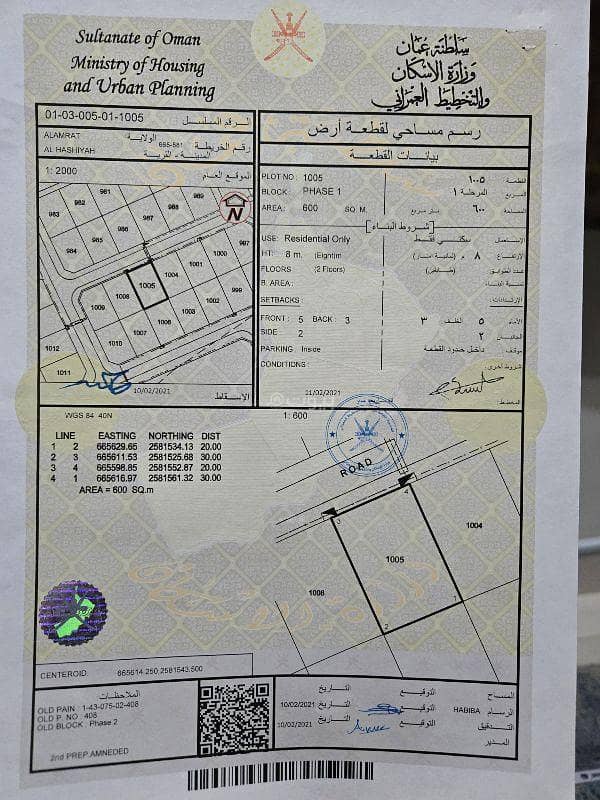 Sultanate of Oman
Ministry of Housing
and Urban Planning
سلطنة عمان
وزارة الإسكان
والتخطيط العمراني
01-03-005-01-1005 الرقم المسلسل :
ALAMRAT الولاية
665-581 رقم الخريطة
AL HASHIYAH المدينة - القرية
1: 2000 الموقع العام
رسم مساحي لقطعة أرض
بيانات القطعة
PLOT NO : 1005 ١٠٠٥ القطعة
BLOCK: PHASE 1 المرحلة ١ المربع
AREA: 600 SQ. M. متر مربع ٦٠٠ المساحة
شروط البناء
USE: Residential Only سكني فقط الاستعمال
HT: 8 m. (Eight)m ٨ م (ثمانية متر) الارتفاع
FLOORS (2 Floors) (طابقين) عدد الطوابق
B. AREA: نسبة البناء
SETBACKS: الارتدادات:
FRONT : 5 BACK : 3 ٣ الخلف ٥ الأمام
SIDE 2 ٢ الجانبين
PARKING : Inside داخل حدود القطعة موقف
CONDITIONS : شروط أخرى:
21/02/2021 المخطط:
981
961
983
982
986
984
985
1000
997
1001
1004
1005
999
1002
1008
1009
1003
1006
1007
1010
1012
1011
N
10/02/2021 الإسقاط
WGS 84 40N
1: 600
LINE EASTING NORTHING DIST
1 2 665629.65 2581534.13 20.00
2 3 665611.53 2581525.68 30.00
3 4 665598.85 2581552.87 20.00
4 1 665616.97 2581561.32 30.00
AREA = 600 SQ.m
ROAD
3
4
1004
1005
1008
1
2
CENTEROID: 665614.250,2581543.500
الملاحظات
OLD PAIN : 1-43-075-02-408
OLD P. NO : 408
OLD BLOCK : Phase 2
2nd PREP.AMNEDED
التاريخ التوقيع المساح
10/02/2021 التاريخ التوقيع HABIBA الرسام
10/02/2021 التاريخ التوقيع التدقيق
المدير